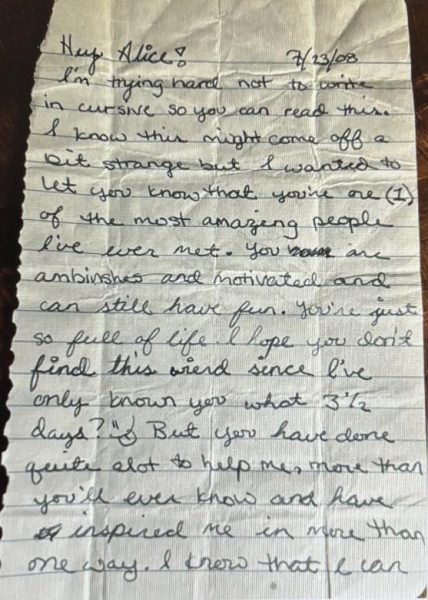 Hey Alice! 7/23/08
I'm trying hard not to write
in cursive so you can read this.
I know this might come off a
bit strange but I wanted to
let you know that you're one (1)
of the most amazing people
I've ever met. You are
ambinshes and motivated and
can still have fun. You're just
so full of life. I hope you don't
find this wierd since I've
only known you what 3 1/2
days? But you have done
quite alot to help me, more than
you'll ever know and have
inspired me in more than
one way. I know that I can